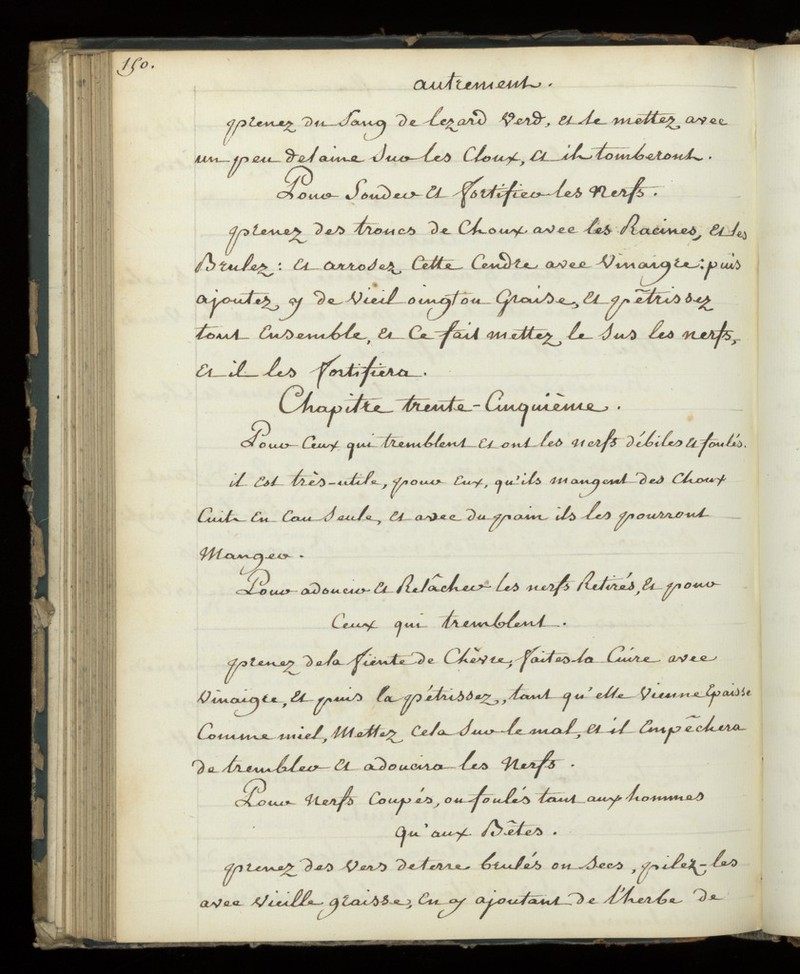 150.
autrement.
prenez du Sang de lezard Verd, et le mettez avec
un peu de laine Sur les Cloux, et ils tomberont.
Pour Souder et fortifier les Nerfs.
prenez des troncs de Choux avec les Racines, et les
Brulez: et arrosez Cette Cendre avec Vinaigre: puis
ajoutez y de Vieil oingt ou Graise, et pêtrissez
tout Ensemble, et Ce fait mettez le Sus les nerfs,
et il les fortifiera.
Chapitre trente-Cinquième.
Pour Ceux qui tremblent et ont les nerfs débiles et foulés.
il est très-utile, pour Eux, qu'ils mangent des Choux
Cuits En Eau Seule, et avec du pain ils les pourront
Manger.
Pour adoucir et Relâcher les nerfs Retirés, et pour
Ceux qui tremblent.
prenez de la fiente de Chêvre, faites la Cuire avec
Vinaigre, et puis la pétrissez, tant qu'elle Vienne Epaisse
Comme miel, Mettez Cela Sur le mal, et il Empêchera
de trembler et adoucira les Nerfs.
Pour Nerfs Coupés, ou foulés tant aux hommes
qu'aux Bêtes.
prenez des Vers de terre brulés ou Secs, pilez-les
avec Vieille graisse, En y ajoutant de l'herbe de